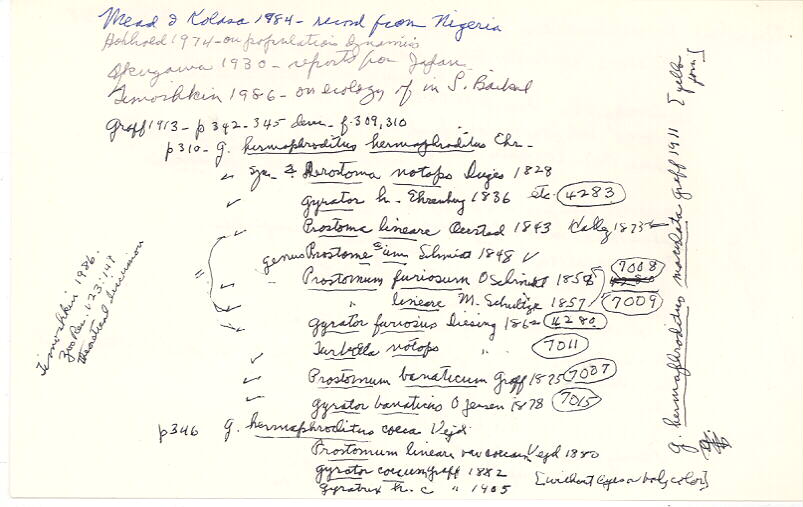 Mead & Kolasa 1984 - record from Nigeria
Heitkamp 1974 - on population dynamics
Okugawa 1930 - reports from Japan
Timoshkin 1986 - on ecology of in S. Baikal
Graff 1913 - p 342-345 descr. f. 309, 310
p310 - G. hermaphroditus hermaphroditus Ehr -
Syn Derostoma notops Duges 1828
Gyrator h. Ehrenberg 1836 etc. 4283
Prostoma lineare Oersted 1843 1873
genus Prostomum Schmidt 1848
Prostomum furiosum O Schmidt 1858 7008
" lineare M. Schultze 1857 7009
Gyrator furiosus Diesing 1862 4280
Turbella notops " 7011
Prostomum banaticum Graff 1875 7007
Gyrator banaticus O Jensen 1878 7015
p346 G. hermaphroditus coeca Vejd
Prostomum lineare var coecum Vejd 1880
Gyrator coecum Graff 1882 [without eyes or body color]
Gyratrix h. c " 1905
Timoshkin 1986
Zoo Rec. 123: 147
theoretical discussion
G. hermaphroditus maculata Graff 1911 [yello form]